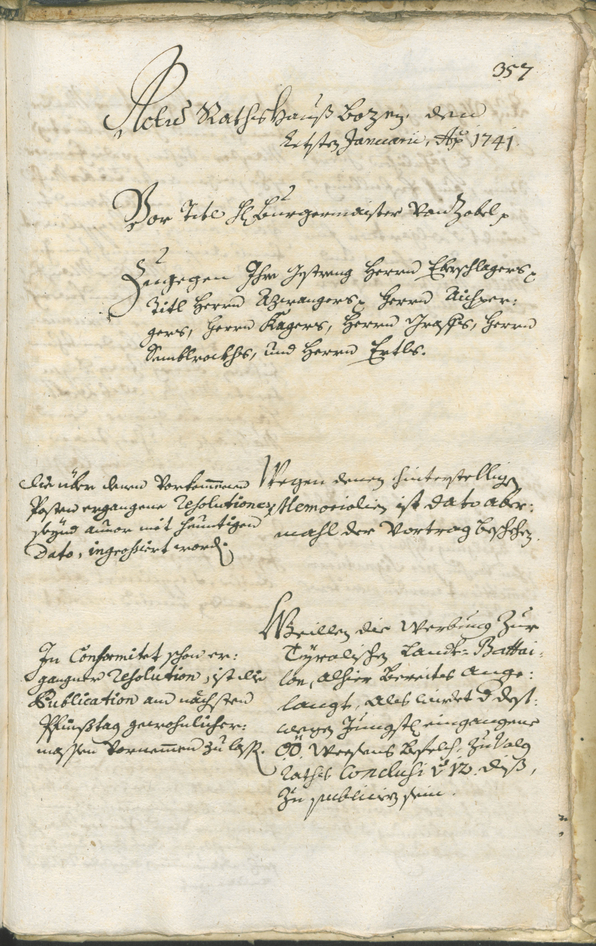 357
Actum Rathshauß Bozen den
letsten Januarii, Ao 1741
Vor Titl H Burgermaister von Zobel p
Zugegen Ihro Gestreng Herrn Eberschlagers p
Titl Herrn Azwangers p Herrn Aichper:
gers, Herrn Kagers, Herrn Grafs, Herrn
Semblrockhs, und Herrn Ertls.
Die über denen vorkommenen
Posten ergangene Resolutionen
seynd auvor mit heuntigen
Dato, ingrossiert worden
Wegen denen hinterstelligen
Memorialien ist dato aber:
mahl der Vortrag beschehen.
In Conformitet schon er:
gangner Resolution, ist die
Publication am nächsten
Pfinztag gewohnlicher:
massen vornemmen zulassen.
Weillen die Werbung zur
Tyrolischen Landt-Battai:
lon, alhier bereites ange:
langt, als wirdet dest:
wegen jungst eingangene
OÖ. Weesens Befelch, zuvolg
Raths Conclusi 12. diß,
zu publicieren sein.